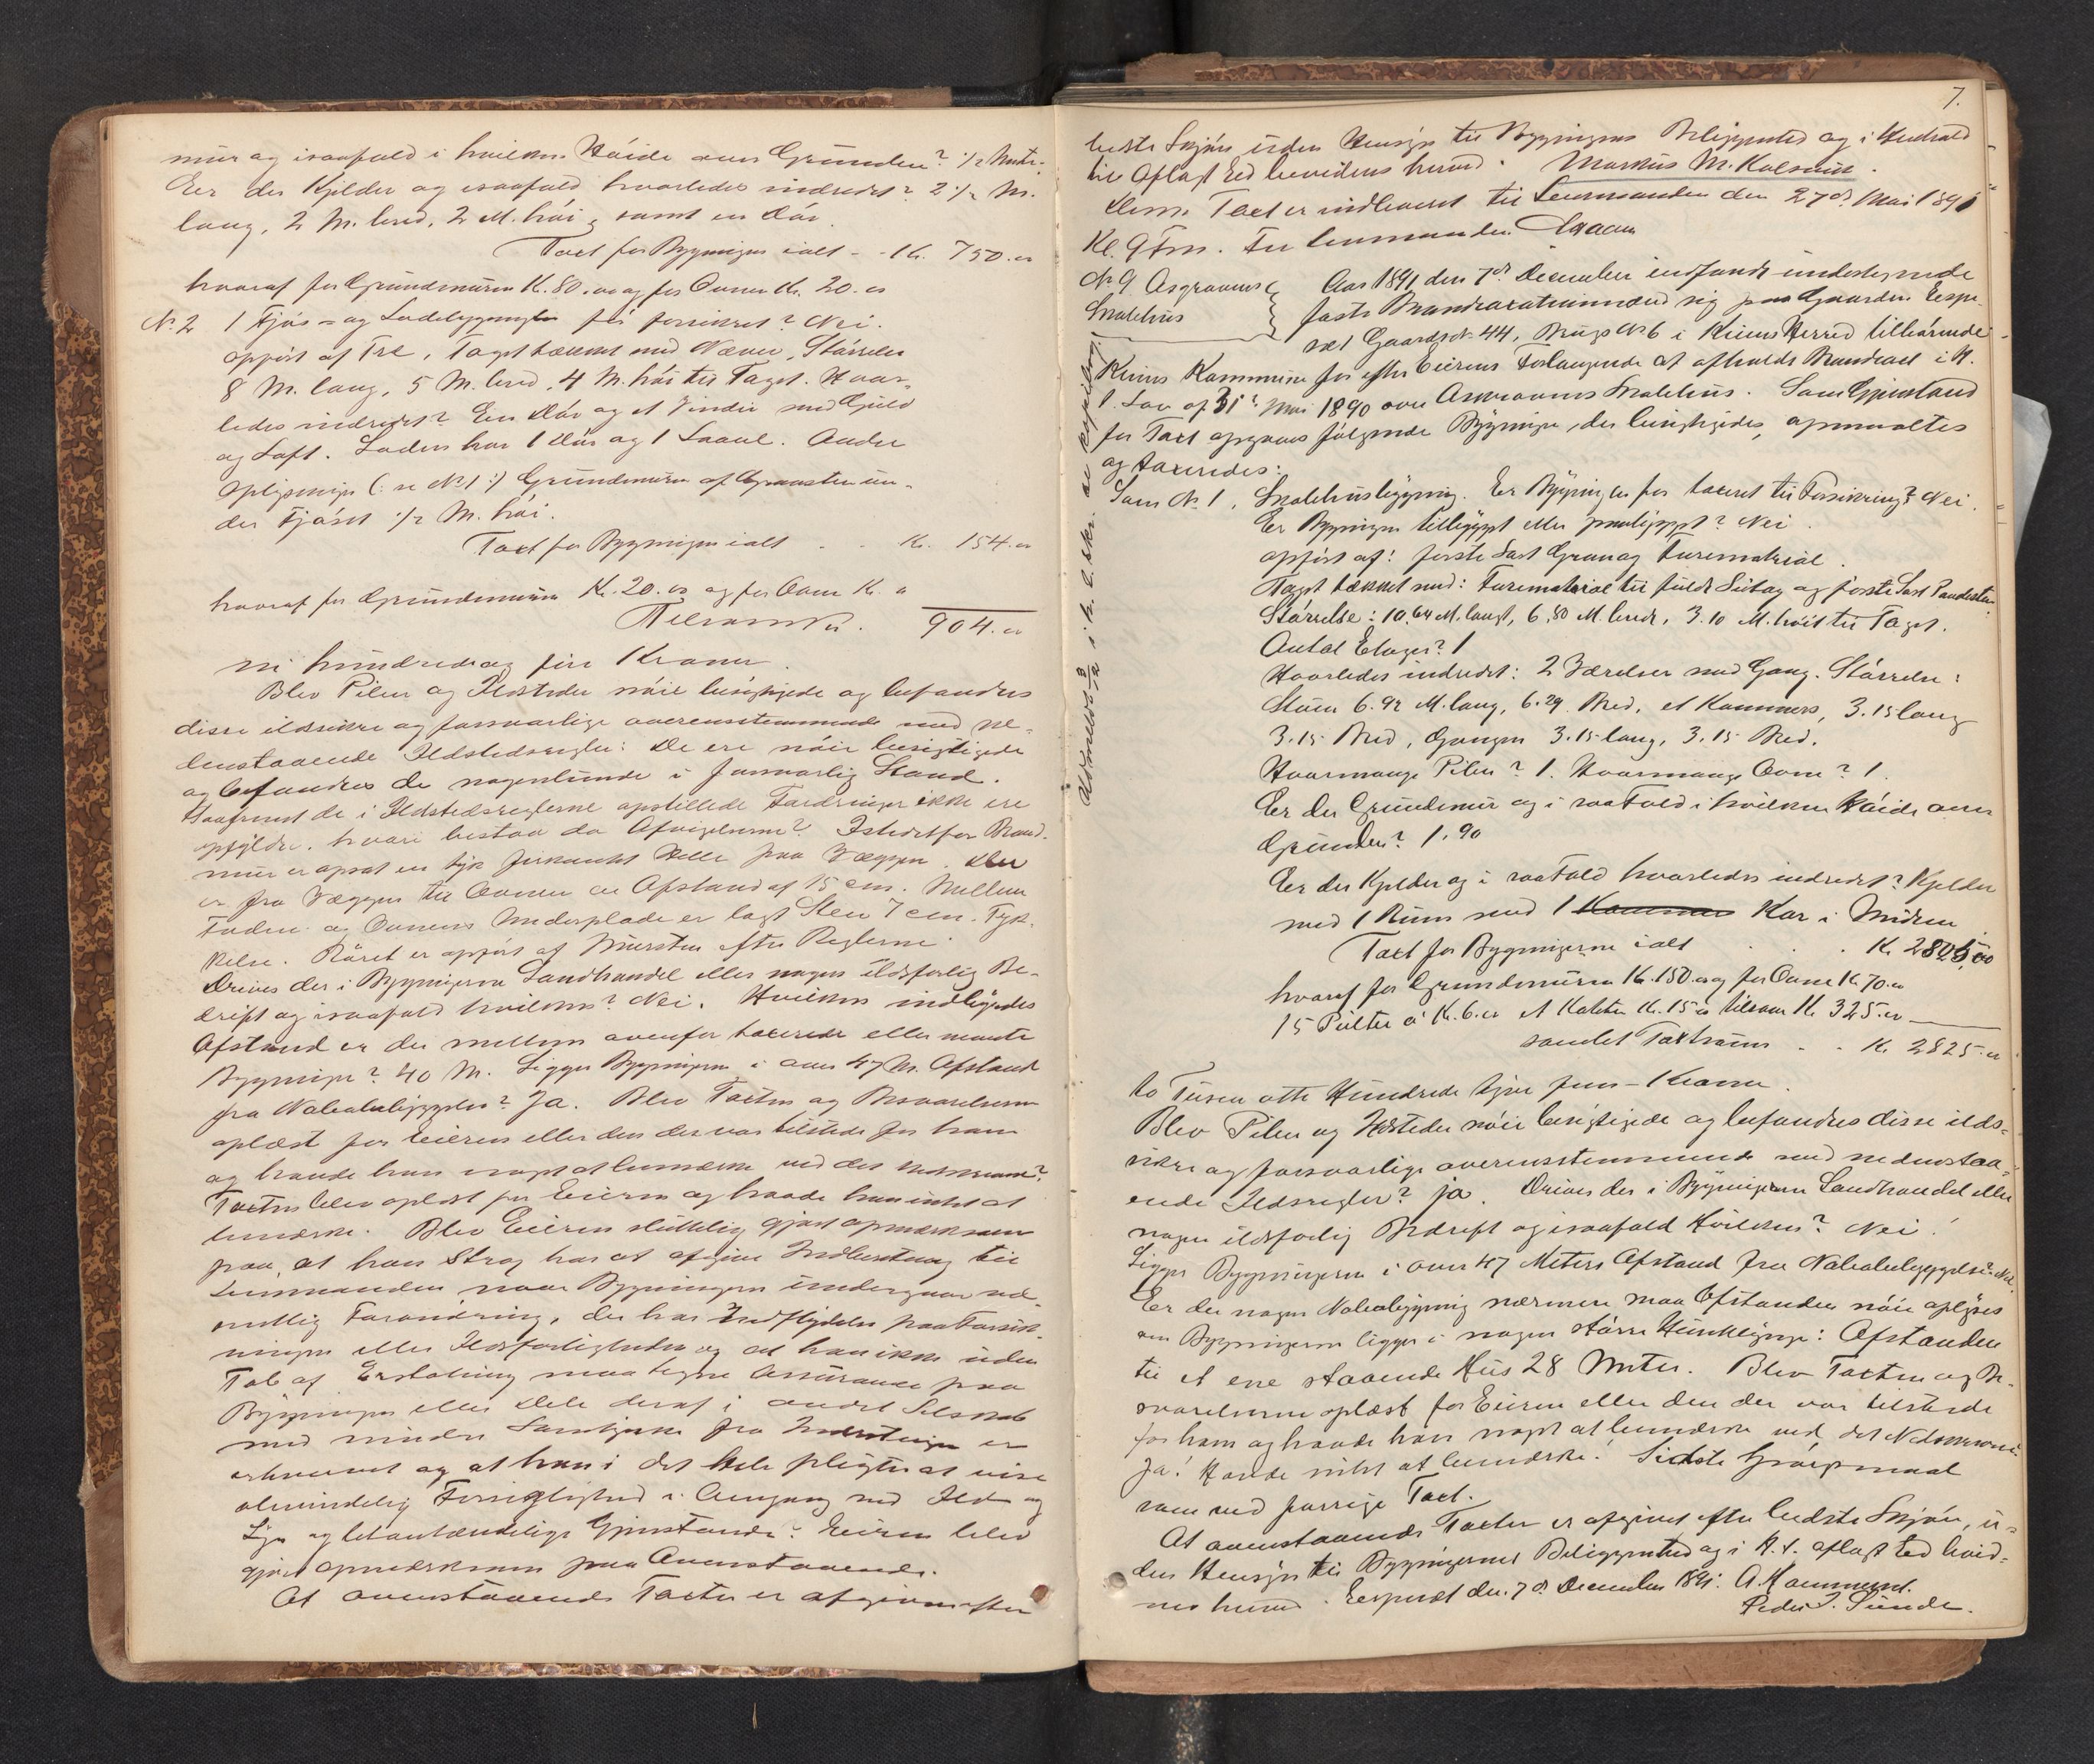 mur og isaafald i hvilken Höide over Grunden? 1/2 Meter.
Er der Kjelder og isaafald hvorledes indredet? 2 1/2 M.
lang, 2 M. bred, 2 M. höi, samt en Dör
Taxt for Bygningen ialt - - Kr. 750.00
hvoraf for Grundmuren Kr. 80.00 og for Ovnen Kr. 20.00
No. 2 1 Fjös- og Ladebygning för forsikret? Nei.
opfört af Træ, Taget tækket med Næver, Störrelse
8 M. lang, 5 M. bred, 4 M. höi til Taget. Hvor-
ledes indredet? En Dör og et Vindu med Gulv
og Loft. Laden har 1 Dör og 1 Laave. Andre
Oplysninger (: se No 1 :) Grundmuren af Graasten un-
der Fjöset 1/2 M. höi.
Taxt for Bygningen ialt - - Kr. 154.00
hvoraf for Grundmuren Kr. 20.00 og for Ovne Kr. "
Tilsammen Kr. 904.00
ni hundrede og fire Kroner.
Blev Piben og Ildsteder nöie besigtigede og befandtes
disse ildsikre og forsvarlige overensstemmende med ne-
denstaaende Ildstedsregler: De ere nöie besigtigede
og befandtes de nogenlunde i forsvarlig Stand.
Saafremt de i Ildstedsreglerne opstillede Fordringer ikke ere
opfyldte, hvori bestaa da Afvigelserne? Istedetfor Brand-
mur er opsat en tyk firkantet Helle paa Væggen. Der
er fra Væggen til Ovnen en Afstand af 15 cm. Mellem
Foden og Ovnens Underplade er lagt Sten 7 cm. Tyk-
kelse. Röret er opfört af Mursten efter Reglerne.
Drives der i Bygningerne Landhandel eller nogen ildsfarlig Be-
drift og isaafald hvilken? Nei. Hvilken indbyrdes
Afstand er der mellem ovenfor taxerede eller nævnte
Bygninger? 40 M. Ligger Bygningerne i over 47 M. Afstand
fra Nabobebyggelse? Ja. Blev Taxten og Besvarelserne
oplæst for Eieren eller den der var tilstede for ham
og havde han noget at bemærke ved det Nedskrevne?
Taxten blev oplæst for Eieren og havde han intet at
bemærke. Blev Eieren sluttelig gjort opmærksom
paa, at han strax har at afgive Indberetning til
Lensmanden naar Bygningen undergaar væ-
sentlig Forandring, der har Indflydelse paa Forsik-
ringen eller Ildsfarligheden og at han ikke uden
Tab af Erstatning maa tegne Assurance paa
Bygningen eller Dele deraf i andet Selskab
med mindre Samtykke fra Indretningen er
erhvervet og at han i det Hele pligter at vise
almindelig Forsigtighed i Omgang med Ild og
Lys og letantændelige Gjenstande? Eieren blev
gjort opmærksom paa Ovenstaaende.
At ovenstaaende Taxter er afgiven efter
7.
bedste Skjön uden Hensyn til Bygningens Beliggenhed og i Henhold
til Aflagt Ed bevidnes herved. Markus M. Kalsvik.
Denne Taxt er indleveret til Lensmanden den 27de Mai 1891
Kl. 9 Fm. For Lensmanden
No 9 Asgravens
Skolehus
Aar 1891 den 7de December indfandt undertegnede
faste Brandtaxationsmænd sig paa Gaarden Espe-
set Gaards No 44, Brugs No 6 i Kinns Herred tilhörende
Kinns Kommune for efter Eierens Forlangende at afholde Brandtaxt i H.
t. Lov af 31te Mai 1890 over Asgravens Skolehus. Som Gjenstand
for Taxt opgaves fölgende Bygninger, der besigtigedes, opmaaltes
og taxeredes:
Som No 1, Skolehusbygning. Er Bygningen för taxeret til Forsikring? Nei.
Er Bygningen tilbygget eller paabygget? Nei.
opfört af: förste Sort Gran og Furemateriale.
Taget tækket med: Furemateriale til fuldt Sutag og förste Sort Pandesten.
Störrelse: 10.64 M. langt, 6.80 M. bredt, 3.10 M. höit til Taget.
Antal Etager? 1
Hvorledes indredet: 2 Værelser med Gang. Störrelse:
Stuen 6.92 M. lang, 6.29 Bred, et Kammers, 3.15 lang
3.15 Bred, Gangen 3.15 lang, 3.15 Bred.
Hvormange Piber? 1. Hvormange Ovne? 1.
Er der Grundmur og i saa Fald i hvilken Höide over
Grunden? 1.90
Er der Kjelder og i saa Fald hvorledes indredet? Kjelder
med 1 Rum med 1 Kammer Kar i Midten
Taxt for Bygningerne ialt . . . Kr. 2825.00
hvoraf for Grundmuren Kr. 150.00 og for Ovne Kr. 70.00
15 Pulter à Kr. 6.00 et Kateter Kr. 15.00 tilsam Kr. 325.00
samlet Taxtsum . . Kr. 2825.00
to Tusen otte Hundrede tyve fem - Kroner.
Blev Piben og Ildsteder nöie besigtigede og befandtes disse ilds-
sikre og forsvarlige overensstemmende med nedenstaa-
ende Ildsregler? ja. Drives der i Bygningerne Landhandel eller
nogen ildsfarlig Bedrift og isaafald Hvilken? Nei!
Ligger Bygningerne i over 47 Meters Afstand fra Nabobebyggelse? Nei.
Er der nogen Nabobygning nærmere maa Afstanden nöie oplyses
om Bygningerne ligger i nogen större Husklynge: Afstanden
til et ene staaende Hus 28 Meter. Blev Taxten og Be-
svarelserne oplæst for Eieren eller den der var tilstede
for ham og havde han noget at bemærke ved det Nedskrevne?
Ja! Havde intet at bemærke! Sidste Spörgsmaal
som ved forrige Taxt.
At ovenstaaende Taxter er afgivet efter bedste Skjön, u-
den Hensyn til Bygningernes Beliggenhed og i H. t. aflagt Ed bevid-
nes herved. Espeset den 7de December 1891. A. Hammerset.
Peder J. Sunde.